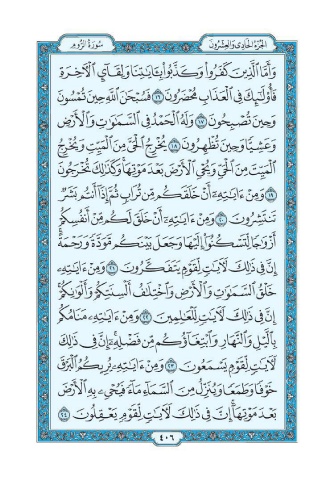 سورة الروم
الجزء الحادي والعشرون
وَأَمَّا ٱلَّذِينَ كَفَرُوا۟ وَكَذَّبُوا۟ بِـَٔايَـٰتِنَا وَلِقَآئِ ٱلْـَٔاخِرَةِ
فَأُو۟لَـٰٓئِكَ فِى ٱلْعَذَابِ مُحْضَرُونَ ١٦ فَسُبْحَـٰنَ ٱللَّهِ حِينَ تُمْسُونَ
وَحِينَ تُصْبِحُونَ ١٧ وَلَهُ ٱلْحَمْدُ فِى ٱلسَّمَـٰوَٰتِ وَٱلْأَرْضِ
وَعَشِيًّا وَحِينَ تُظْهِرُونَ ١٨ يُخْرِجُ ٱلْحَىَّ مِنَ ٱلْمَيِّتِ وَيُخْرِجُ
ٱلْمَيِّتَ مِنَ ٱلْحَىِّ وَيُحْىِ ٱلْأَرْضَ بَعْدَ مَوْتِهَا وَكَذَٰلِكَ تُخْرَجُونَ
١٩ وَمِنْ ءَايَـٰتِهِۦٓ أَنْ خَلَقَكُم مِّن تُرَابٍ ثُمَّ إِذَآ أَنتُم بَشَرٌ
تَنتَشِرُونَ ٢٠ وَمِنْ ءَايَـٰتِهِۦٓ أَنْ خَلَقَ لَكُم مِّنْ أَنفُسِكُمْ
أَزْوَٰجًا لِّتَسْكُنُوٓا۟ إِلَيْهَا وَجَعَلَ بَيْنَكُم مَّوَدَّةً وَرَحْمَةً ۚ
إِنَّ فِى ذَٰلِكَ لَـَٔايَـٰتٍ لِّقَوْمٍ يَتَفَكَّرُونَ ٢١ وَمِنْ ءَايَـٰتِهِۦ
خَلْقُ ٱلسَّمَـٰوَٰتِ وَٱلْأَرْضِ وَٱخْتِلَـٰفُ أَلْسِنَتِكُمْ وَأَلْوَٰنِكُمْ ۚ
إِنَّ فِى ذَٰلِكَ لَـَٔايَـٰتٍ لِّلْعَـٰلِمِينَ ٢٢ وَمِنْ ءَايَـٰتِهِۦ مَنَامُكُم
بِٱلَّيْلِ وَٱلنَّهَارِ وَٱبْتِغَآؤُكُم مِّن فَضْلِهِۦٓ ۚ إِنَّ فِى ذَٰلِكَ
لَـَٔايَـٰتٍ لِّقَوْمٍ يَسْمَعُونَ ٢٣ وَمِنْ ءَايَـٰتِهِۦ يُرِيكُمُ ٱلْبَرْقَ
خَوْفًا وَطَمَعًا وَيُنَزِّلُ مِنَ ٱلسَّمَآءِ مَآءً فَيُحْىِۦ بِهِ ٱلْأَرْضَ
بَعْدَ مَوْتِهَآ ۚ إِنَّ فِى ذَٰلِكَ لَـَٔايَـٰتٍ لِّقَوْمٍ يَعْقِلُونَ ٢٤
٤٠٦